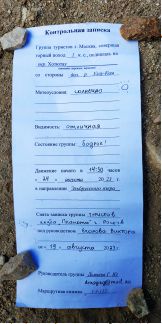 Контрольная записка
Группа туристов г. Москвы, совершая
горный поход 1 к.с., поднялась на
вер. Холодну
со стороны дол. р. Кыр-Кол
Метеоусловия: солнечно
Видимость: отличная
Состояние группы бодрое!
Движение начато в 14:50 часов
« 24 » августа 2023 г.
в направлении
Снята записка группы туристов
клуба "Планета" г.
под руководством Власова Виктора
от « 19 » августа 2023 г.
Руководитель группы
Маршрутная книжка